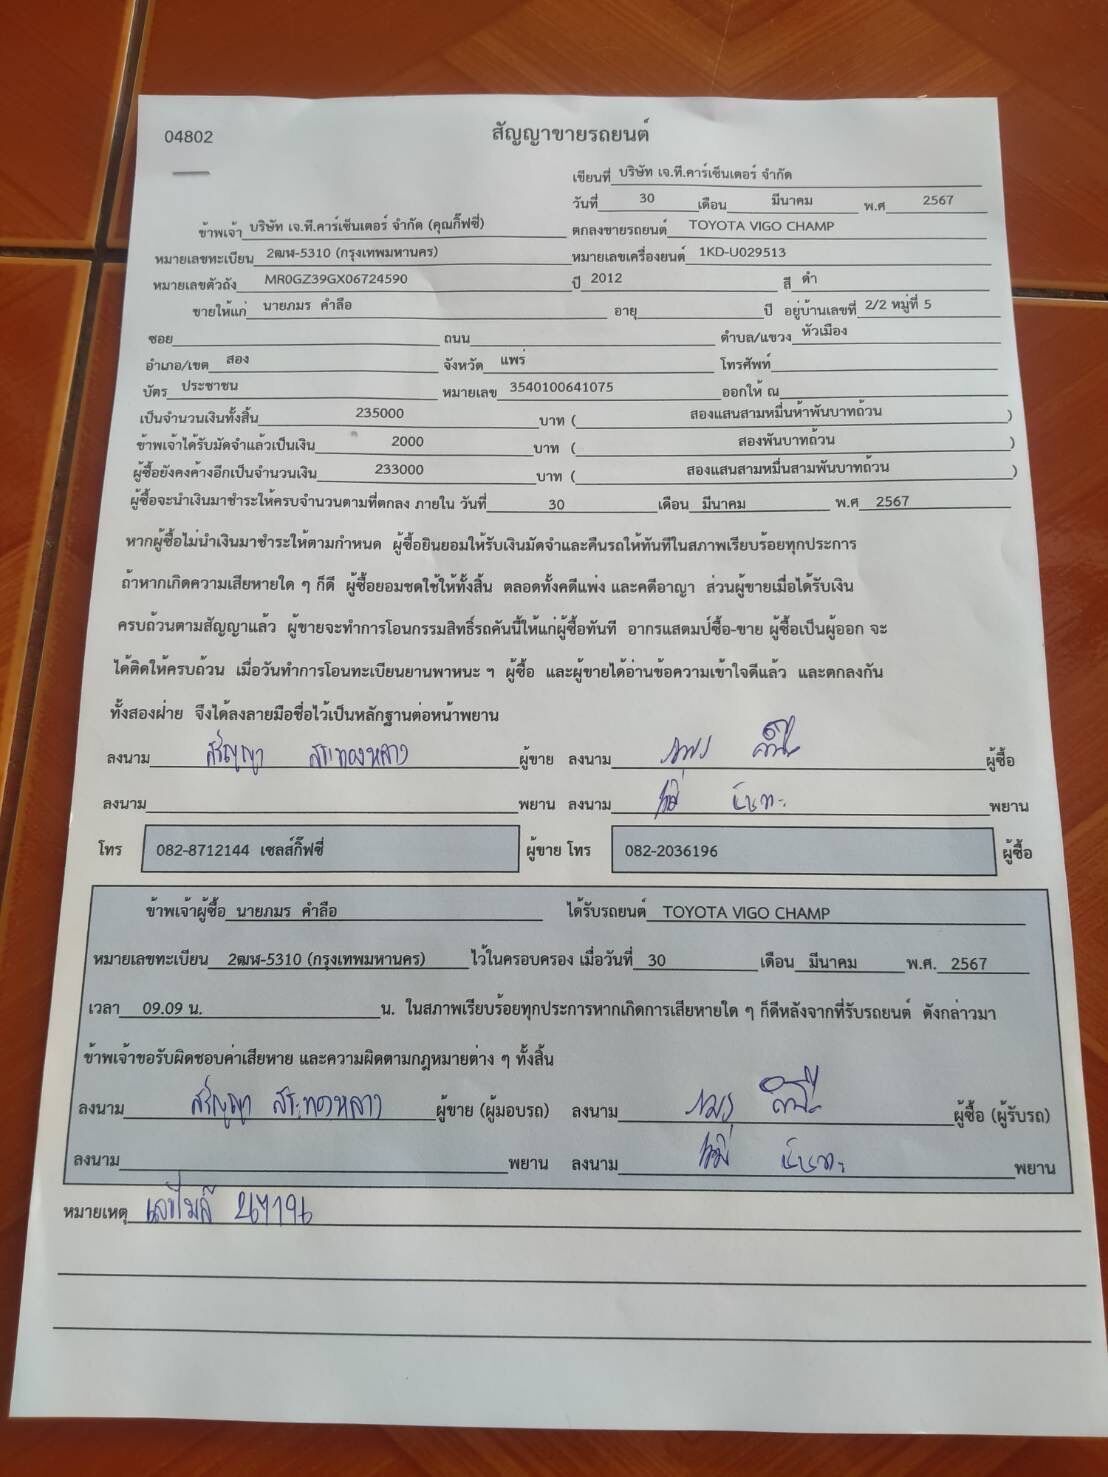 04802
สัญญาขายรถยนต์
เขียนที่ บริษัท เจ.ที.คาร์เซ็นเตอร์ จำกัด
วันที่ 30 เดือน มีนาคม พ.ศ 2567
ข้าพเจ้า บริษัท เจ.ที.คาร์เซ็นเตอร์ จำกัด (คุณกิ๊ฟซี่) ตกลงขายรถยนต์ TOYOTA VIGO CHAMP
หมายเลขทะเบียน 2ฒฬ-5310 (กรุงเทพมหานคร) หมายเลขเครื่องยนต์ 1KD-U029513
หมายเลขตัวถัง MR0GZ39GX06724590 ปี 2012 สี ดำ
ขายให้แก่ นายภมร คำลือ อายุ ปี อยู่บ้านเลขที่ 2/2 หมู่ที่ 5
ซอย ถนน ตำบล/แขวง หัวเมือง
อำเภอ/เขต สอง จังหวัด แพร่ โทรศัพท์
บัตร ประชาชน หมายเลข 3540100641075 ออกให้ ณ
เป็นจำนวนเงินทั้งสิ้น 235000 บาท ( สองแสนสามหมื่นห้าพันบาทถ้วน )
ข้าพเจ้าได้รับมัดจำแล้วเป็นเงิน 2000 บาท ( สองพันบาทถ้วน )
ผู้ซื้อยังคงค้างอีกเป็นจำนวนเงิน 233000 บาท ( สองแสนสามหมื่นสามพันบาทถ้วน )
ผู้ซื้อจะนำเงินมาชำระให้ครบจำนวนตามที่ตกลง ภายใน วันที่ 30 เดือน มีนาคม พ.ศ 2567
หากผู้ซื้อไม่นำเงินมาชำระให้ตามกำหนด ผู้ซื้อยินยอมให้รับเงินมัดจำและคืนรถให้ทันทีในสภาพเรียบร้อยทุกประการ
ถ้าหากเกิดความเสียหายใด ๆ ก็ดี ผู้ซื้อยอมชดใช้ให้ทั้งสิ้น ตลอดทั้งคดีแพ่ง และคดีอาญา ส่วนผู้ขายเมื่อได้รับเงิน
ครบถ้วนตามสัญญาแล้ว ผู้ขายจะทำการโอนกรรมสิทธิ์รถคันนี้ให้แก่ผู้ซื้อทันที อากรแสตมป์ซื้อ-ขาย ผู้ซื้อเป็นผู้ออก จะ
ได้ติดให้ครบถ้วน เมื่อวันทำการโอนทะเบียนยานพาหนะ ฯ ผู้ซื้อ และผู้ขายได้อ่านข้อความเข้าใจดีแล้ว และตกลงกัน
ทั้งสองฝ่าย จึงได้ลงลายมือชื่อไว้เป็นหลักฐานต่อหน้าพยาน
ลงนาม สรัญญา สระทองหลาง ผู้ขาย ลงนาม ภมร ผู้ซื้อ
ลงนาม พยาน ลงนาม พยาน
โทร 082-8712144 เซลส์กิ๊ฟซี่ ผู้ขาย โทร 082-2036196 ผู้ซื้อ
ข้าพเจ้าผู้ซื้อ นายภมร คำลือ ได้รับรถยนต์ TOYOTA VIGO CHAMP
หมายเลขทะเบียน 2ฒฬ-5310 (กรุงเทพมหานคร) ไว้ในครอบครอง เมื่อวันที่ 30 เดือน มีนาคม พ.ศ. 2567
เวลา 09.09 น. น. ในสภาพเรียบร้อยทุกประการหากเกิดการเสียหายใด ๆ ก็ดีหลังจากที่รับรถยนต์ ดังกล่าวมา
ข้าพเจ้าขอรับผิดชอบค่าเสียหาย และความผิดตามกฎหมายต่าง ๆ ทั้งสิ้น
ลงนาม สรัญญา สระทองหลาง ผู้ขาย (ผู้มอบรถ) ลงนาม ภมร ผู้ซื้อ (ผู้รับรถ)
ลงนาม พยาน ลงนาม พยาน
หมายเหตุ เลขไมล์